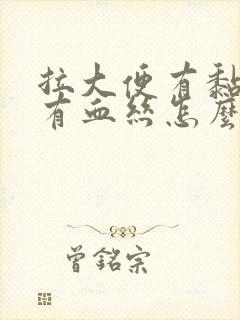 拉大便有黏
有血丝怎麽
曾銘宗